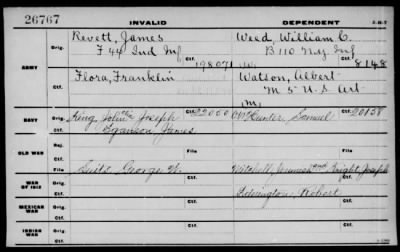 26767 INVALID DEPENDENT 3-H-7
ARMY
Orig. Revett, James Weed, William C.
F 44 Ind Inf B 110 N.Y. Inf
Ctf. 198071 Ctf. 8148
Flora, Franklin Watson, Albert
M 5 U.S. Art
Ctf.
NAVY Orig. King, John Joseph 22050 Hunter Samuel 20158
Ctf. James Ctf.
OLD WAR Orig.
File File
Ctf.
WAR OF 1812 Orig. Suits, George Mitchell, and Wright, Joseph
Ctf. Robert
MEXICAN WAR Orig.
Ctf. Ctf.
INDIAN WAR Orig.
Ctf. Ctf.